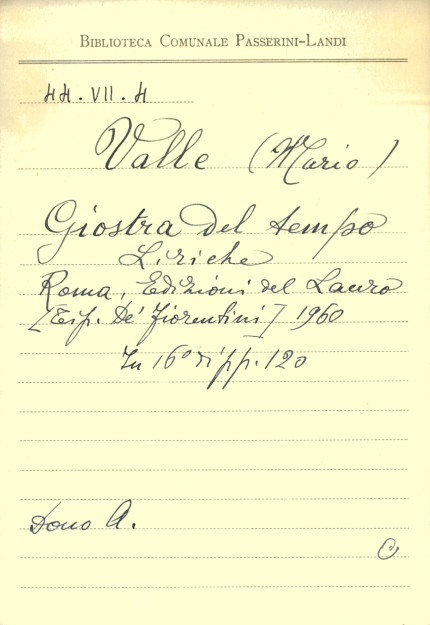 BIBLIOTECA COMUNALE PASSERINI-LANDI
44.VII.4
Valle (Mario)
Giostra del tempo
Liriche
Roma, Edizioni del Lauro
[Tip. De' Fiorentini] 1960
In 16° di pp. 120
Dono A.
C